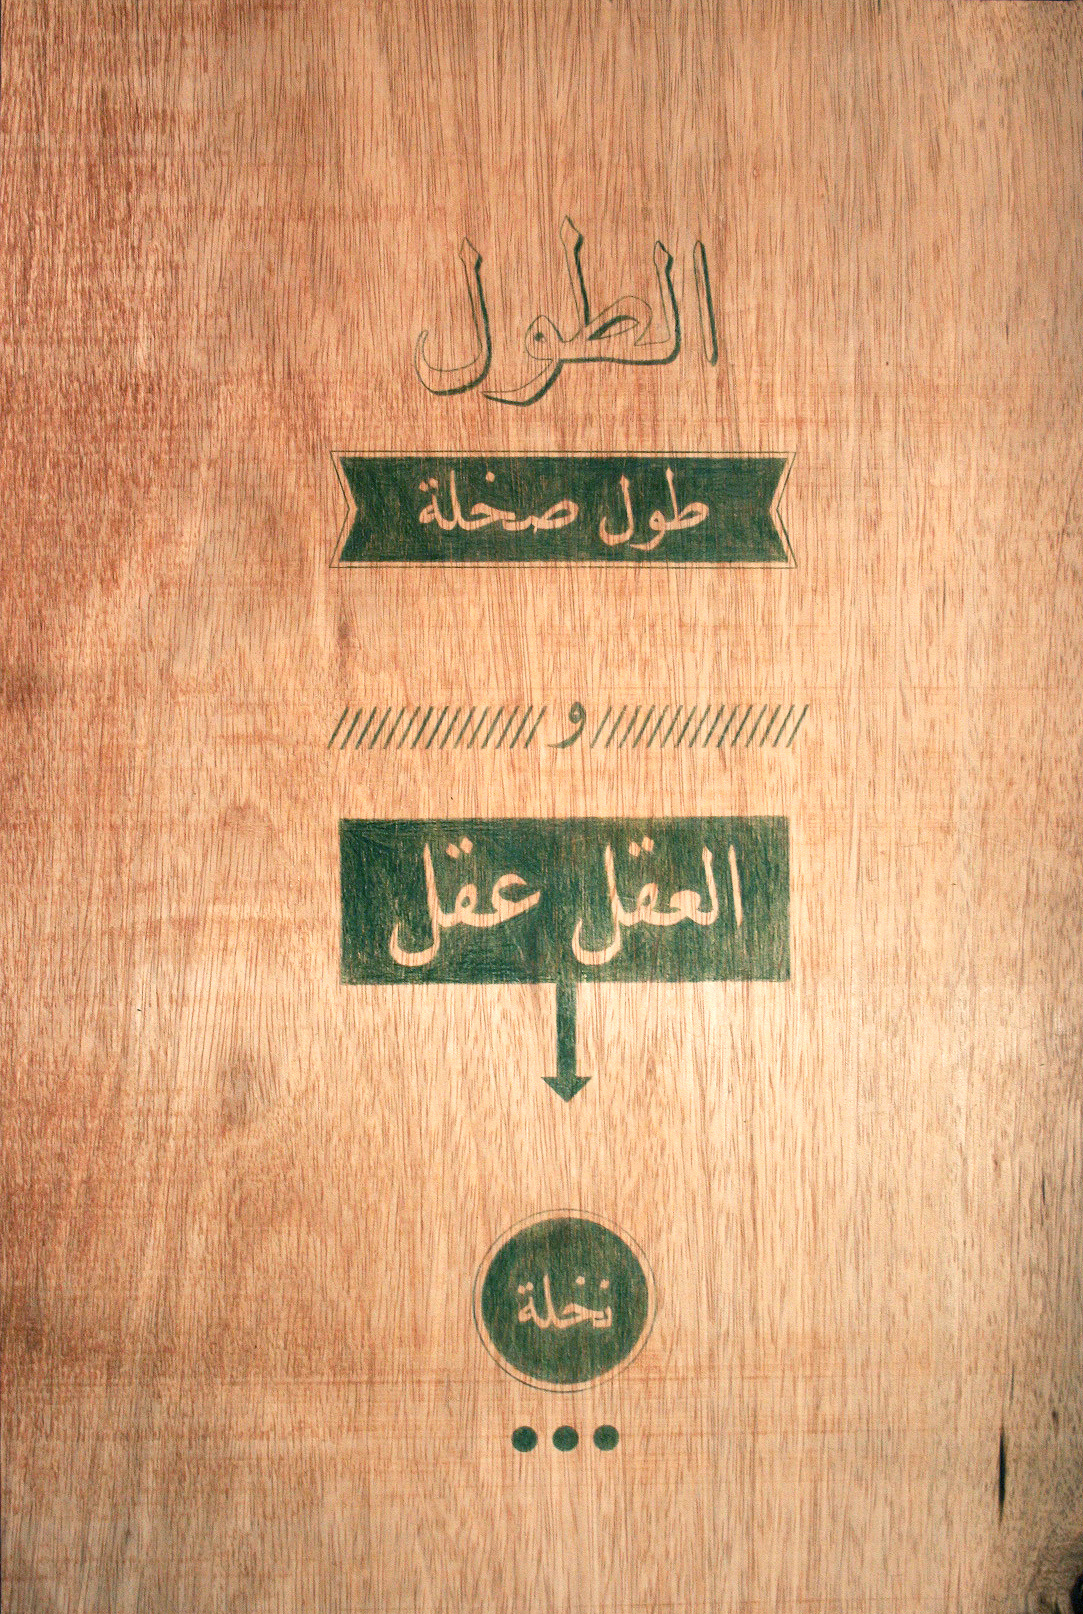 الطول
طول صخلة
و
العقل عقل
نخلة